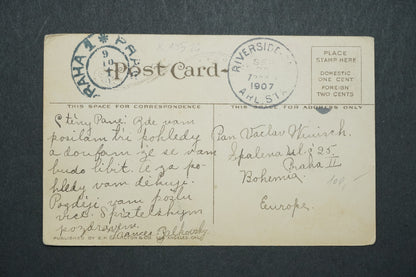 PRAHA 1 * PRAG
Post Card
RIVERSIDE
1907
ARL. STA.
PLACE
STAMP HERE
DOMESTIC
ONE CENT
FOREIGN
TWO CENTS
THIS SPACE FOR CORRESPONDENCE
THIS SPACE FOR ADDRESS ONLY
Ctěný Pane! Zde vam
posilam tri pohledy
a doufam že se vam
budo libit. Ža za po-
hledy vam děkuji.
Později vam poslu
vice. S pratelskym
pozdravem
Pan Vaclav
Spalena ul. č 25
Praha II
Bohemia
Europe.
PUBLISHED BY